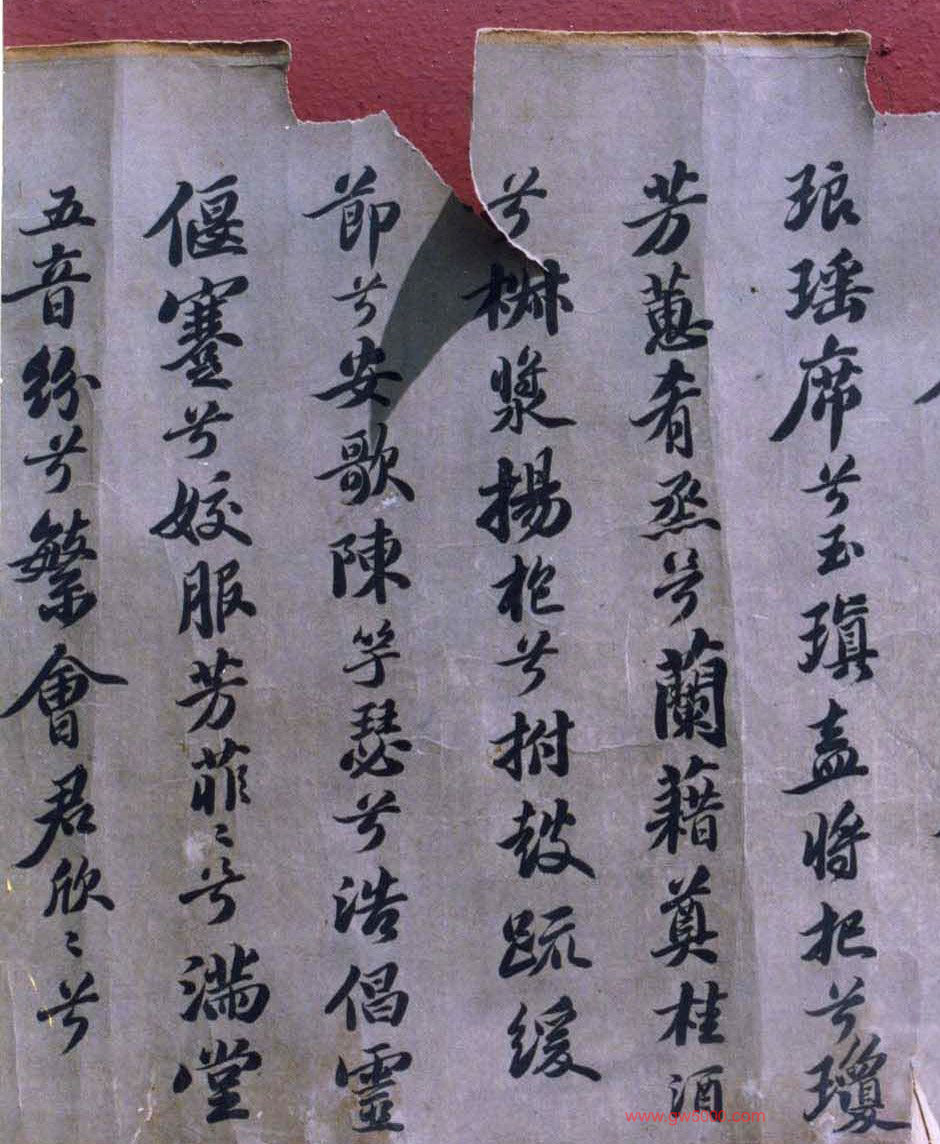 琅瑶席兮玉瑱盍将把兮瓊
芳蕙肴烝兮蘭藉奠桂酒
兮椒漿揚枹兮拊鼓疏緩
節兮安歌陳竽瑟兮浩倡靈
偃蹇兮姣服芳菲〻兮滿堂
五音紛兮繁會君欣〻兮
www.gw5000.com